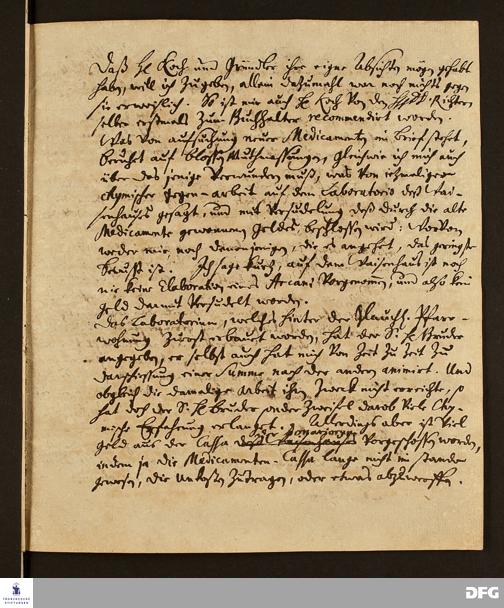 Daß H. Koch und Gründler ihre eigne Absichten mögen gehabt
haben, will ich zugeben, allein dazumahl war noch nichts gegen
sie erweißlich. So ist mir auch H. Koch von den Richtern
selber erstmals zum Buchhalter recommendirt worden.
Was von aufsuchung neuer Medicamenten im Brief stehet,
beruhet auf blossen Muthmassungen, gleichwie ich mich auch
über das jenige verwundern muß, was von ietzmaliger
chymischer gegen-arbeit auf dem Laboratorio deß Wai-
senhauses gesagt, und mit Versudelung deß durch die alte
Medicamente gewonnenen geldes beschlossen wird: Wovon
weder mir noch denenjenigen, die es angehet, das geringste
bewußt ist. Ich sage kurtz, auf dem Waisenhaus ist noch
nie keine Elaboration eines Arcani vorgenommen, und also kein
geld damit versudelt worden.
Das Laboratorium, welches hinter der Glauch. Pfarr-
wohnung zuerst erbauet worden, hat der S. H. Bruder
angegeben, er selbst auch hat mich von Zeit zu Zeit zu
darschiessung einer Summe nach der andern animirt. Und
obgleich die damalige arbeit ihren Zweck nicht erreichte, so
hat doch der S. H. Bruder sonder Zweifel dardurch viele Chy-
mische Erfahrung erlanget. Allerdings aber ist viel
geld aus der Cassa vorgeschossen worden,
indem ja die Medicamenten-Cassa lange nicht im stande
gewesen, die Unkosten zutragen, oder etwas abzuwerffen.
FRANCKESCHE
STIFTUNGEN
DFG